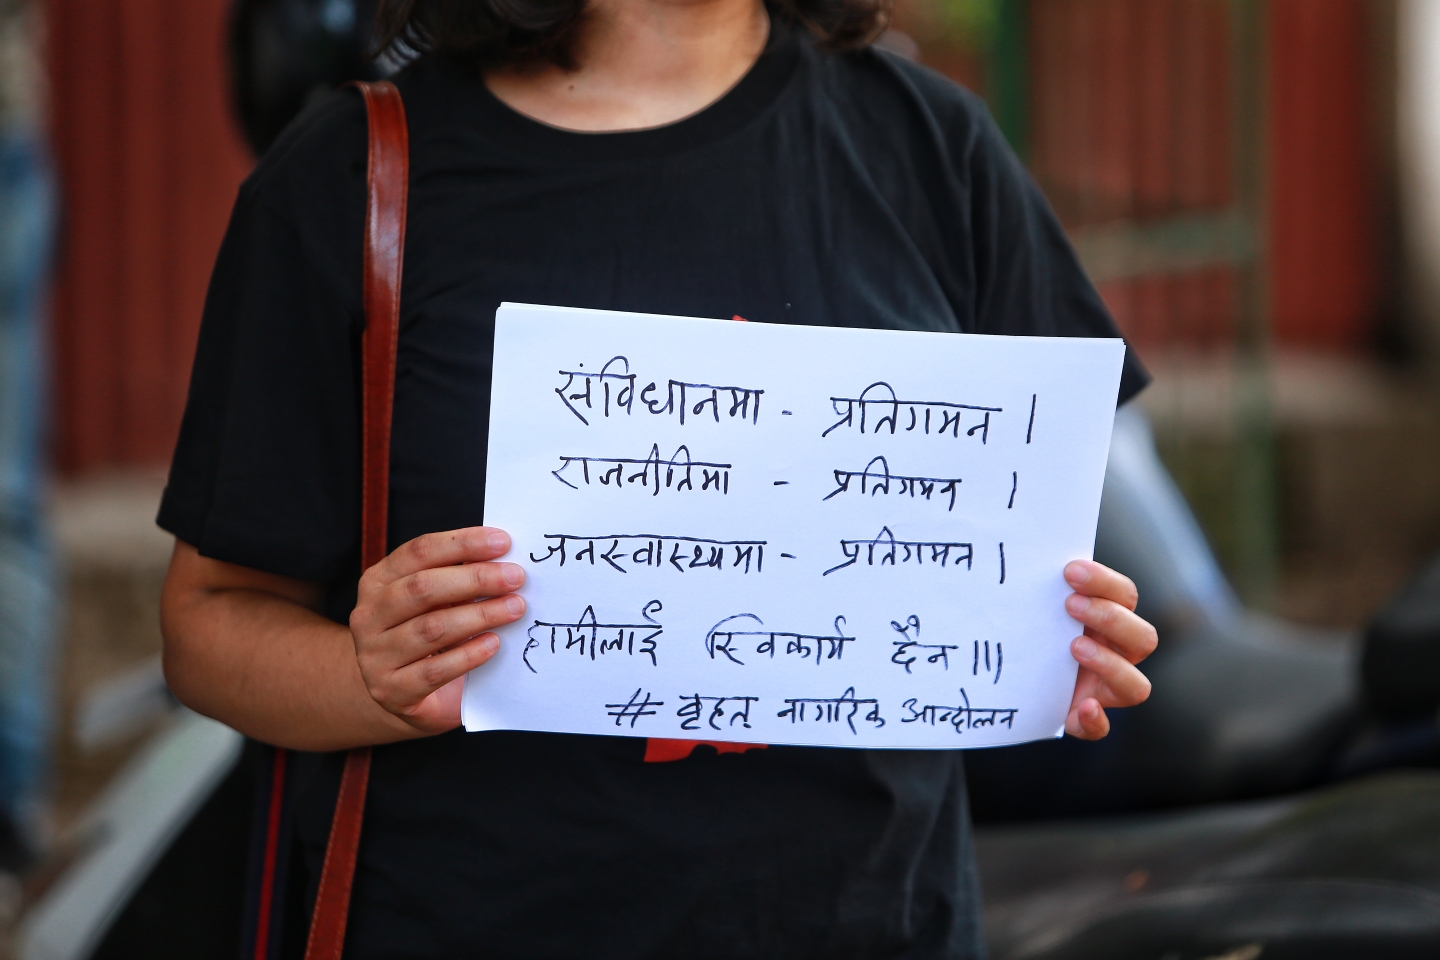 संविधानमा - प्रतिगमन ।
राजनीतिमा - प्रतिगमन ।
जनस्वास्थ्यमा - प्रतिगमन ।
हामीलाई स्विकार्य छैन ।।।
# बृहत् नागरिक आन्दोलन